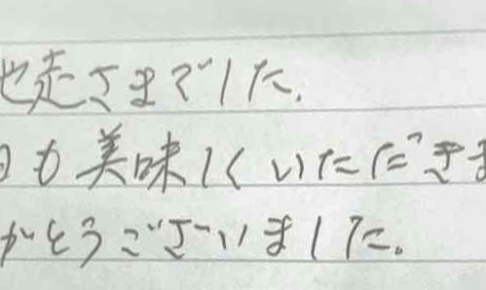 也走さまでした.
日も美味しくいただきま
がとうございました。